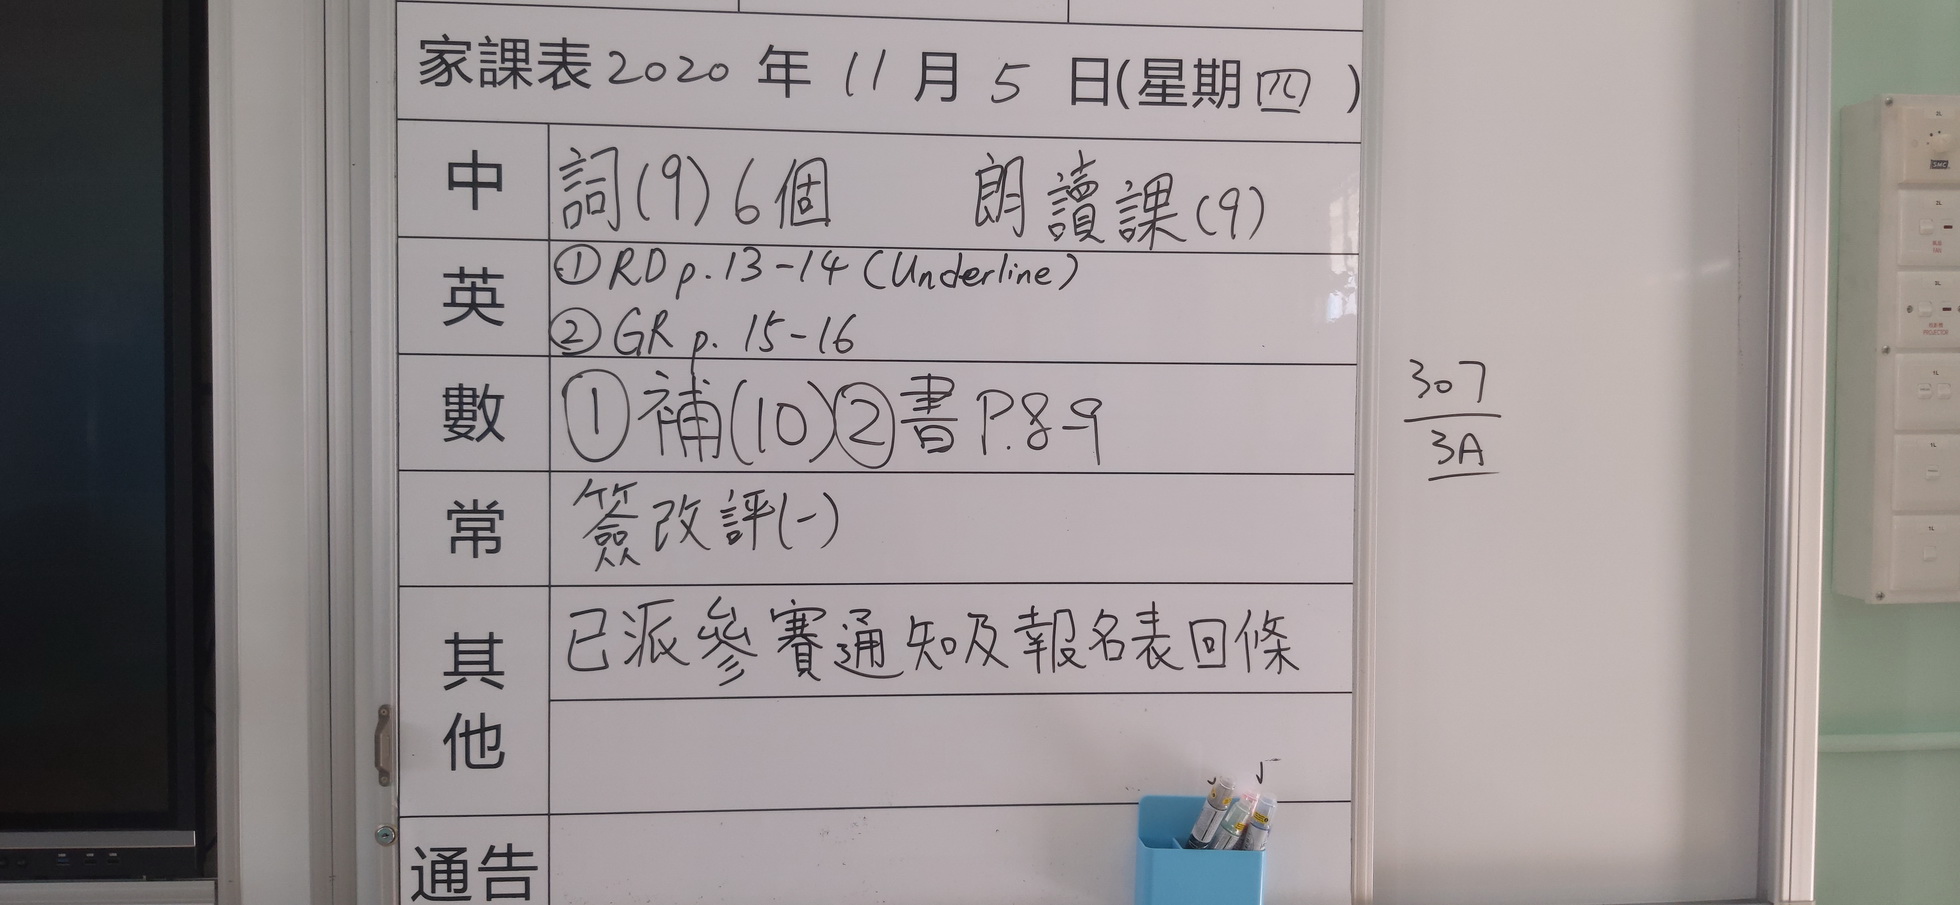 家課表2020年11月5日(星期四)
中 詞(9)6個 朗讀課(9)
英 ①RD p.13-14(Underline)
②GR p.15-16
數 ①補(10)②書P.8-9
常 簽改評(一)
其他 已派參賽通知及報名表回條
通告
307
3A